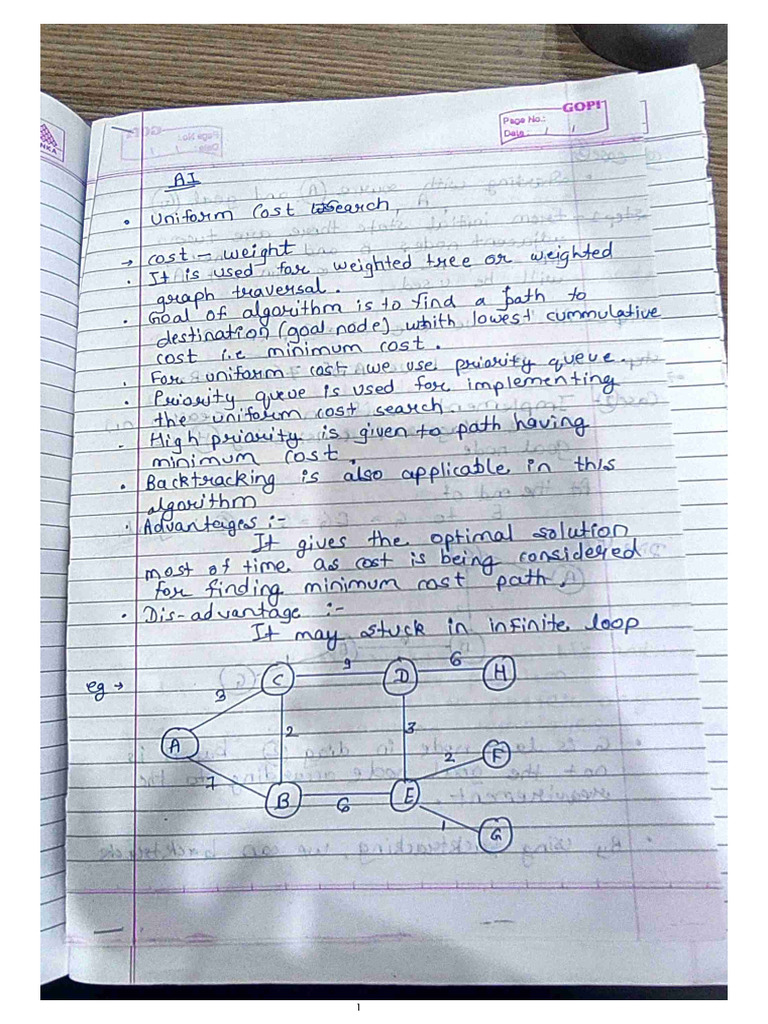 GOPI
Page No.:
Date : / /
AI
• Uniform Cost Search
→ cost - weight
• It is used for weighted tree or weighted
graph traversal.
• Goal of algorithm is to find a path to
destination (goal node) whith lowest cummulative
cost i.e minimum cost.
• For uniform cost we use priority queue.
• Priority queue is used for implementing
the uniform cost search.
• High priority is given to path having
minimum cost.
• Backtracking is also applicable in this
algorithm
• Advantages :-
It gives the optimal solution
most of time as cost is being considered
for finding minimum cost path.
• Dis-advantage :-
It may stuck in infinite loop
eg →
C 9 D 6 H
3
A 2 3
2 F
7
B 6 E
1 G
1